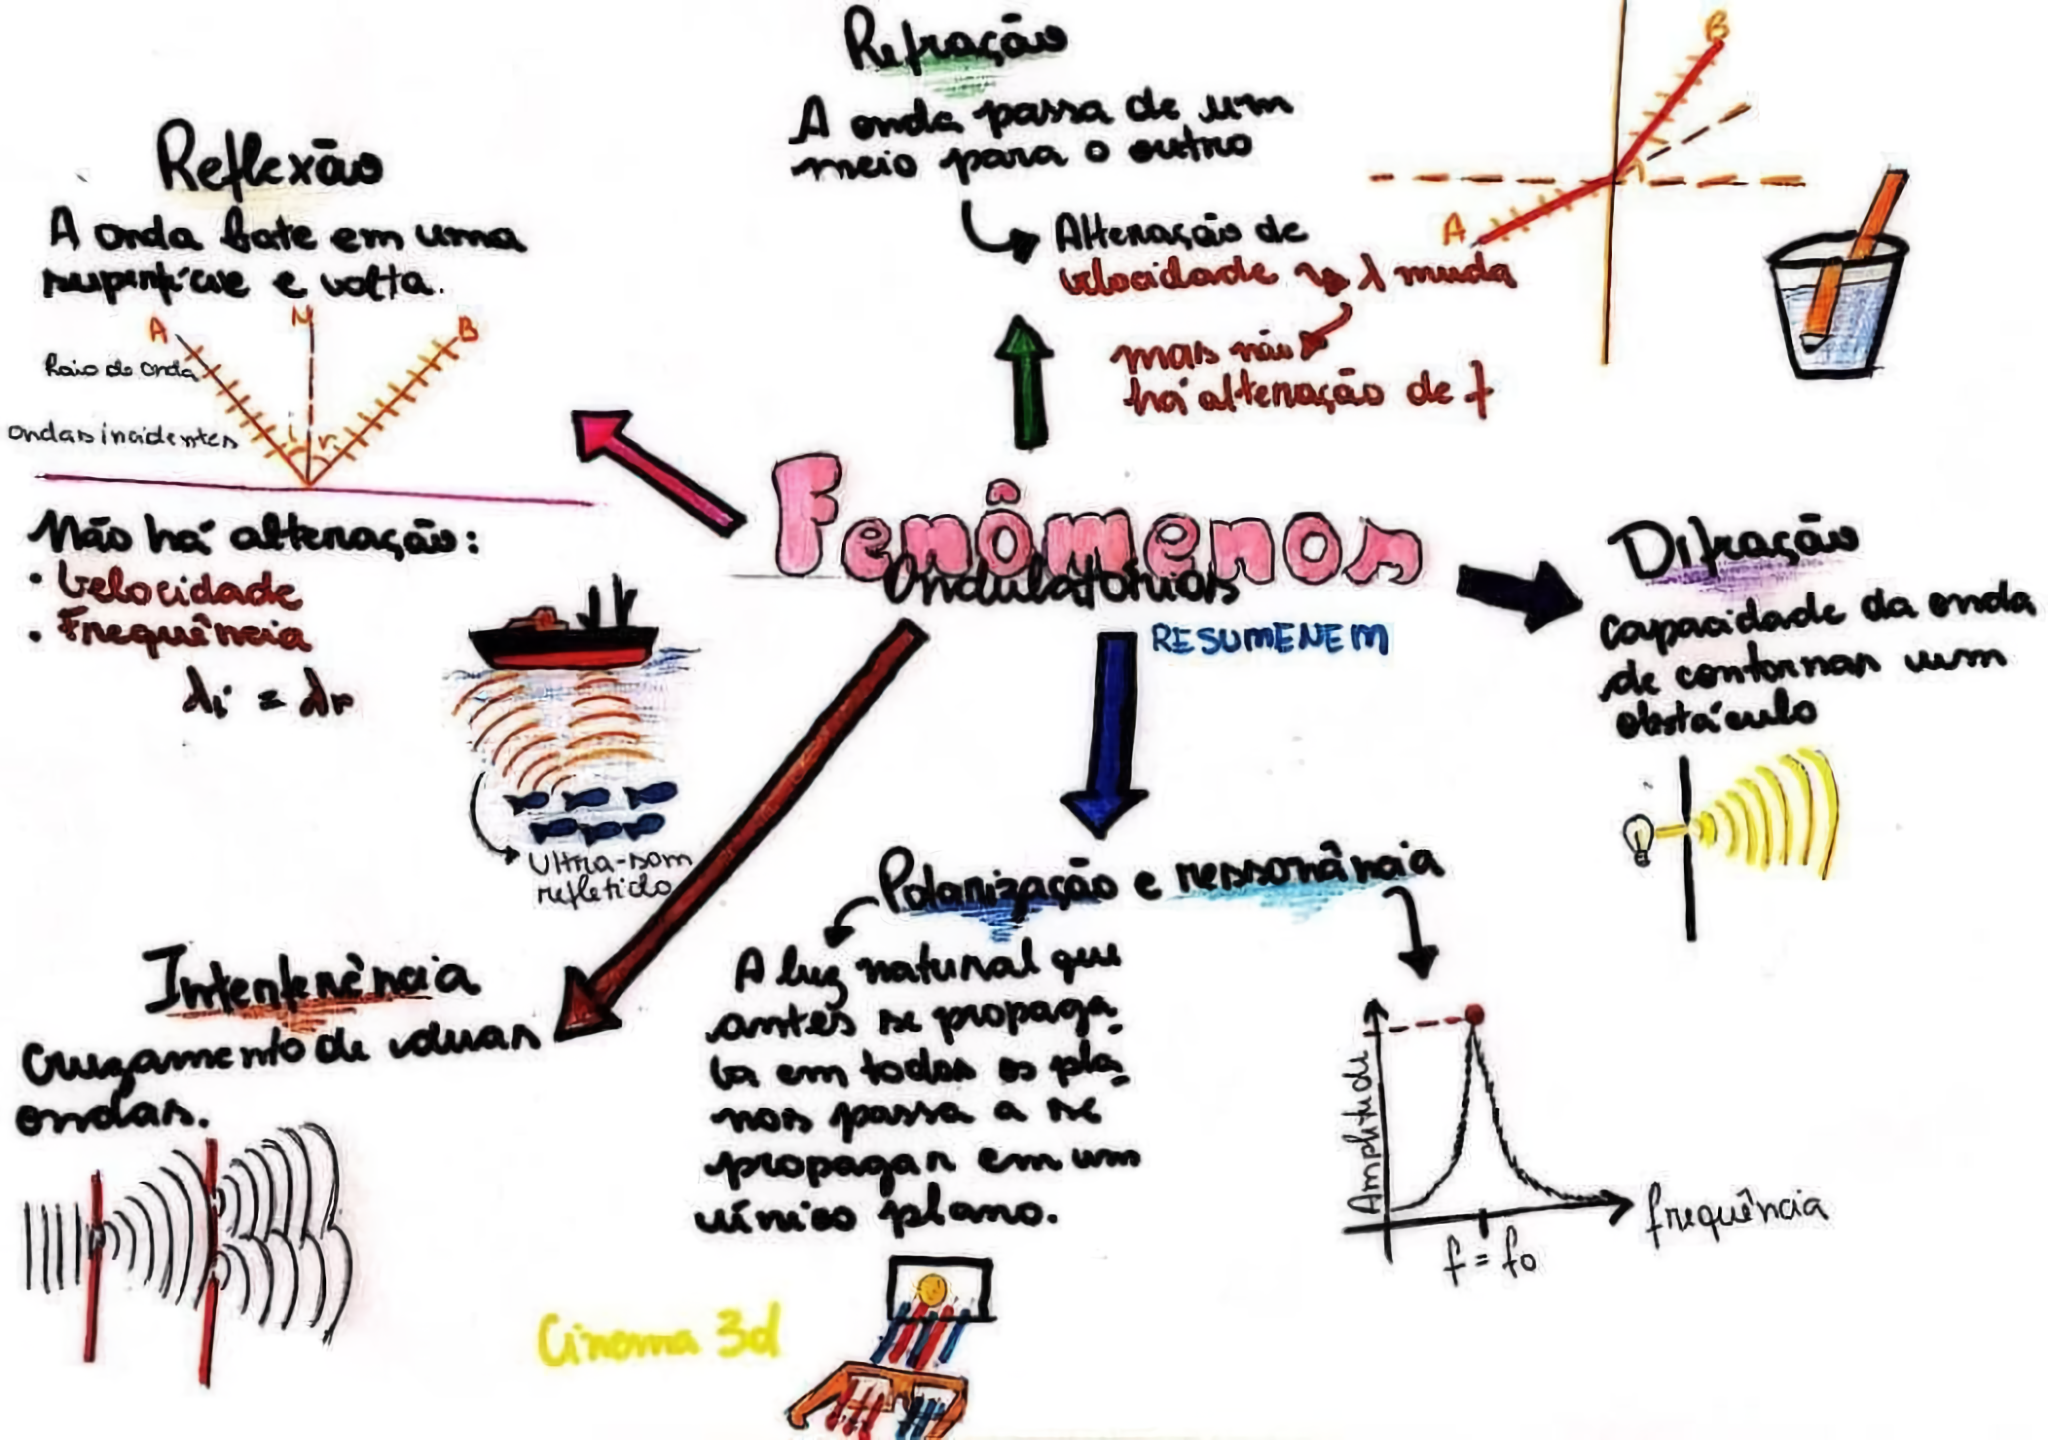 Refração
A onda passa de um
meio para o outro
Alteração de
velocidade → λ muda
mas não
há alteração de f
A
B
Reflexão
A onda bate em uma
superfície e volta.
A
N
B
Raio de onda
i
r
ondas incidentes
Não há alteração:
• Velocidade
• Frequência
λi = λr
Ultra-som
refletido
Fenômenos
Ondulatórios
RESUMENEM
Difração
Capacidade da onda
de contornar um
obstáculo
Polarização e ressonância
A luz natural que
antes se propaga-
va em todos os pla-
nos passa a se
propagar em um
único plano.
Cinema 3d
Amplitude
frequência
f = fo
Interferência
Cruzamento de duas
ondas.